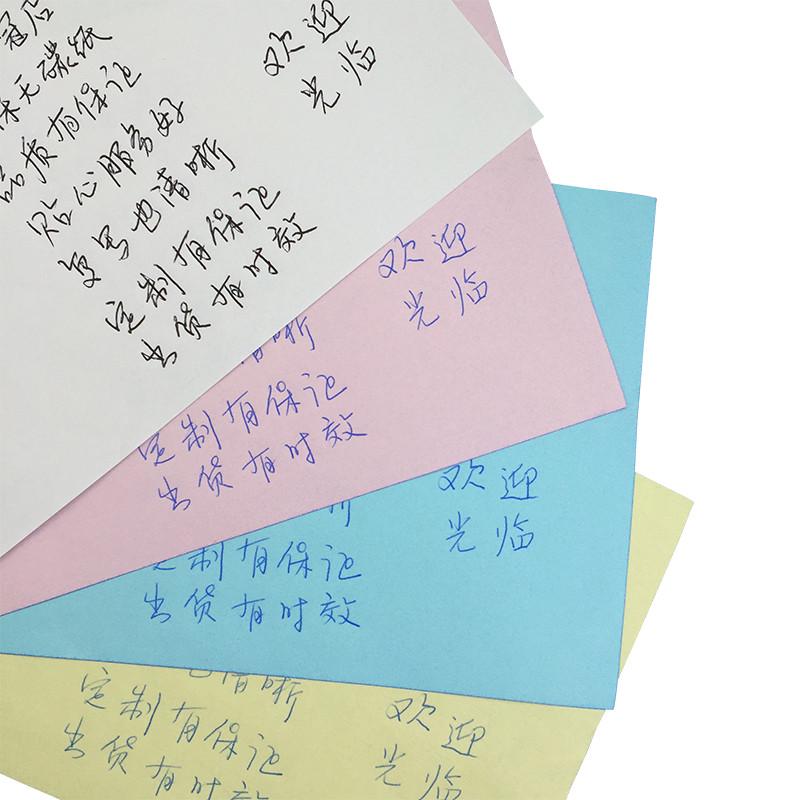 冠店
无碳纸
品质有保证
贴心服务好
复写也清晰
定制有保证
出货有时效
欢迎
光临
清晰
定制有保证
出货有时效
欢迎
光临
制有保证
出货有时效
欢迎
光临
清晰
定制有保证
出货有时效
欢迎
光临